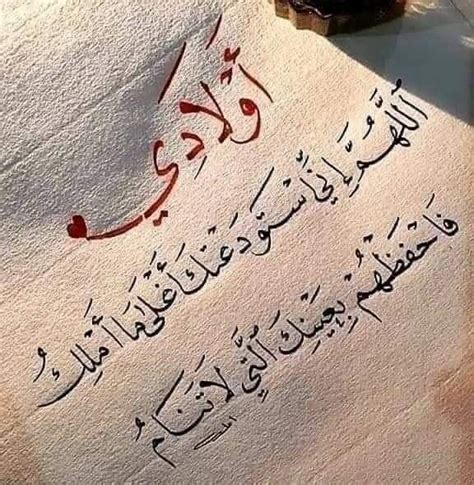 أَوْلَادِي
اَللَّهُمَّ إِنِّي أَسْتَوْدَعْتُكَ أَغْلَى مَا أَمْلِكُ
فَاحْفَظْهُمْ بِعَيْنِكَ اَلَّتِي لَا تَنَامُ